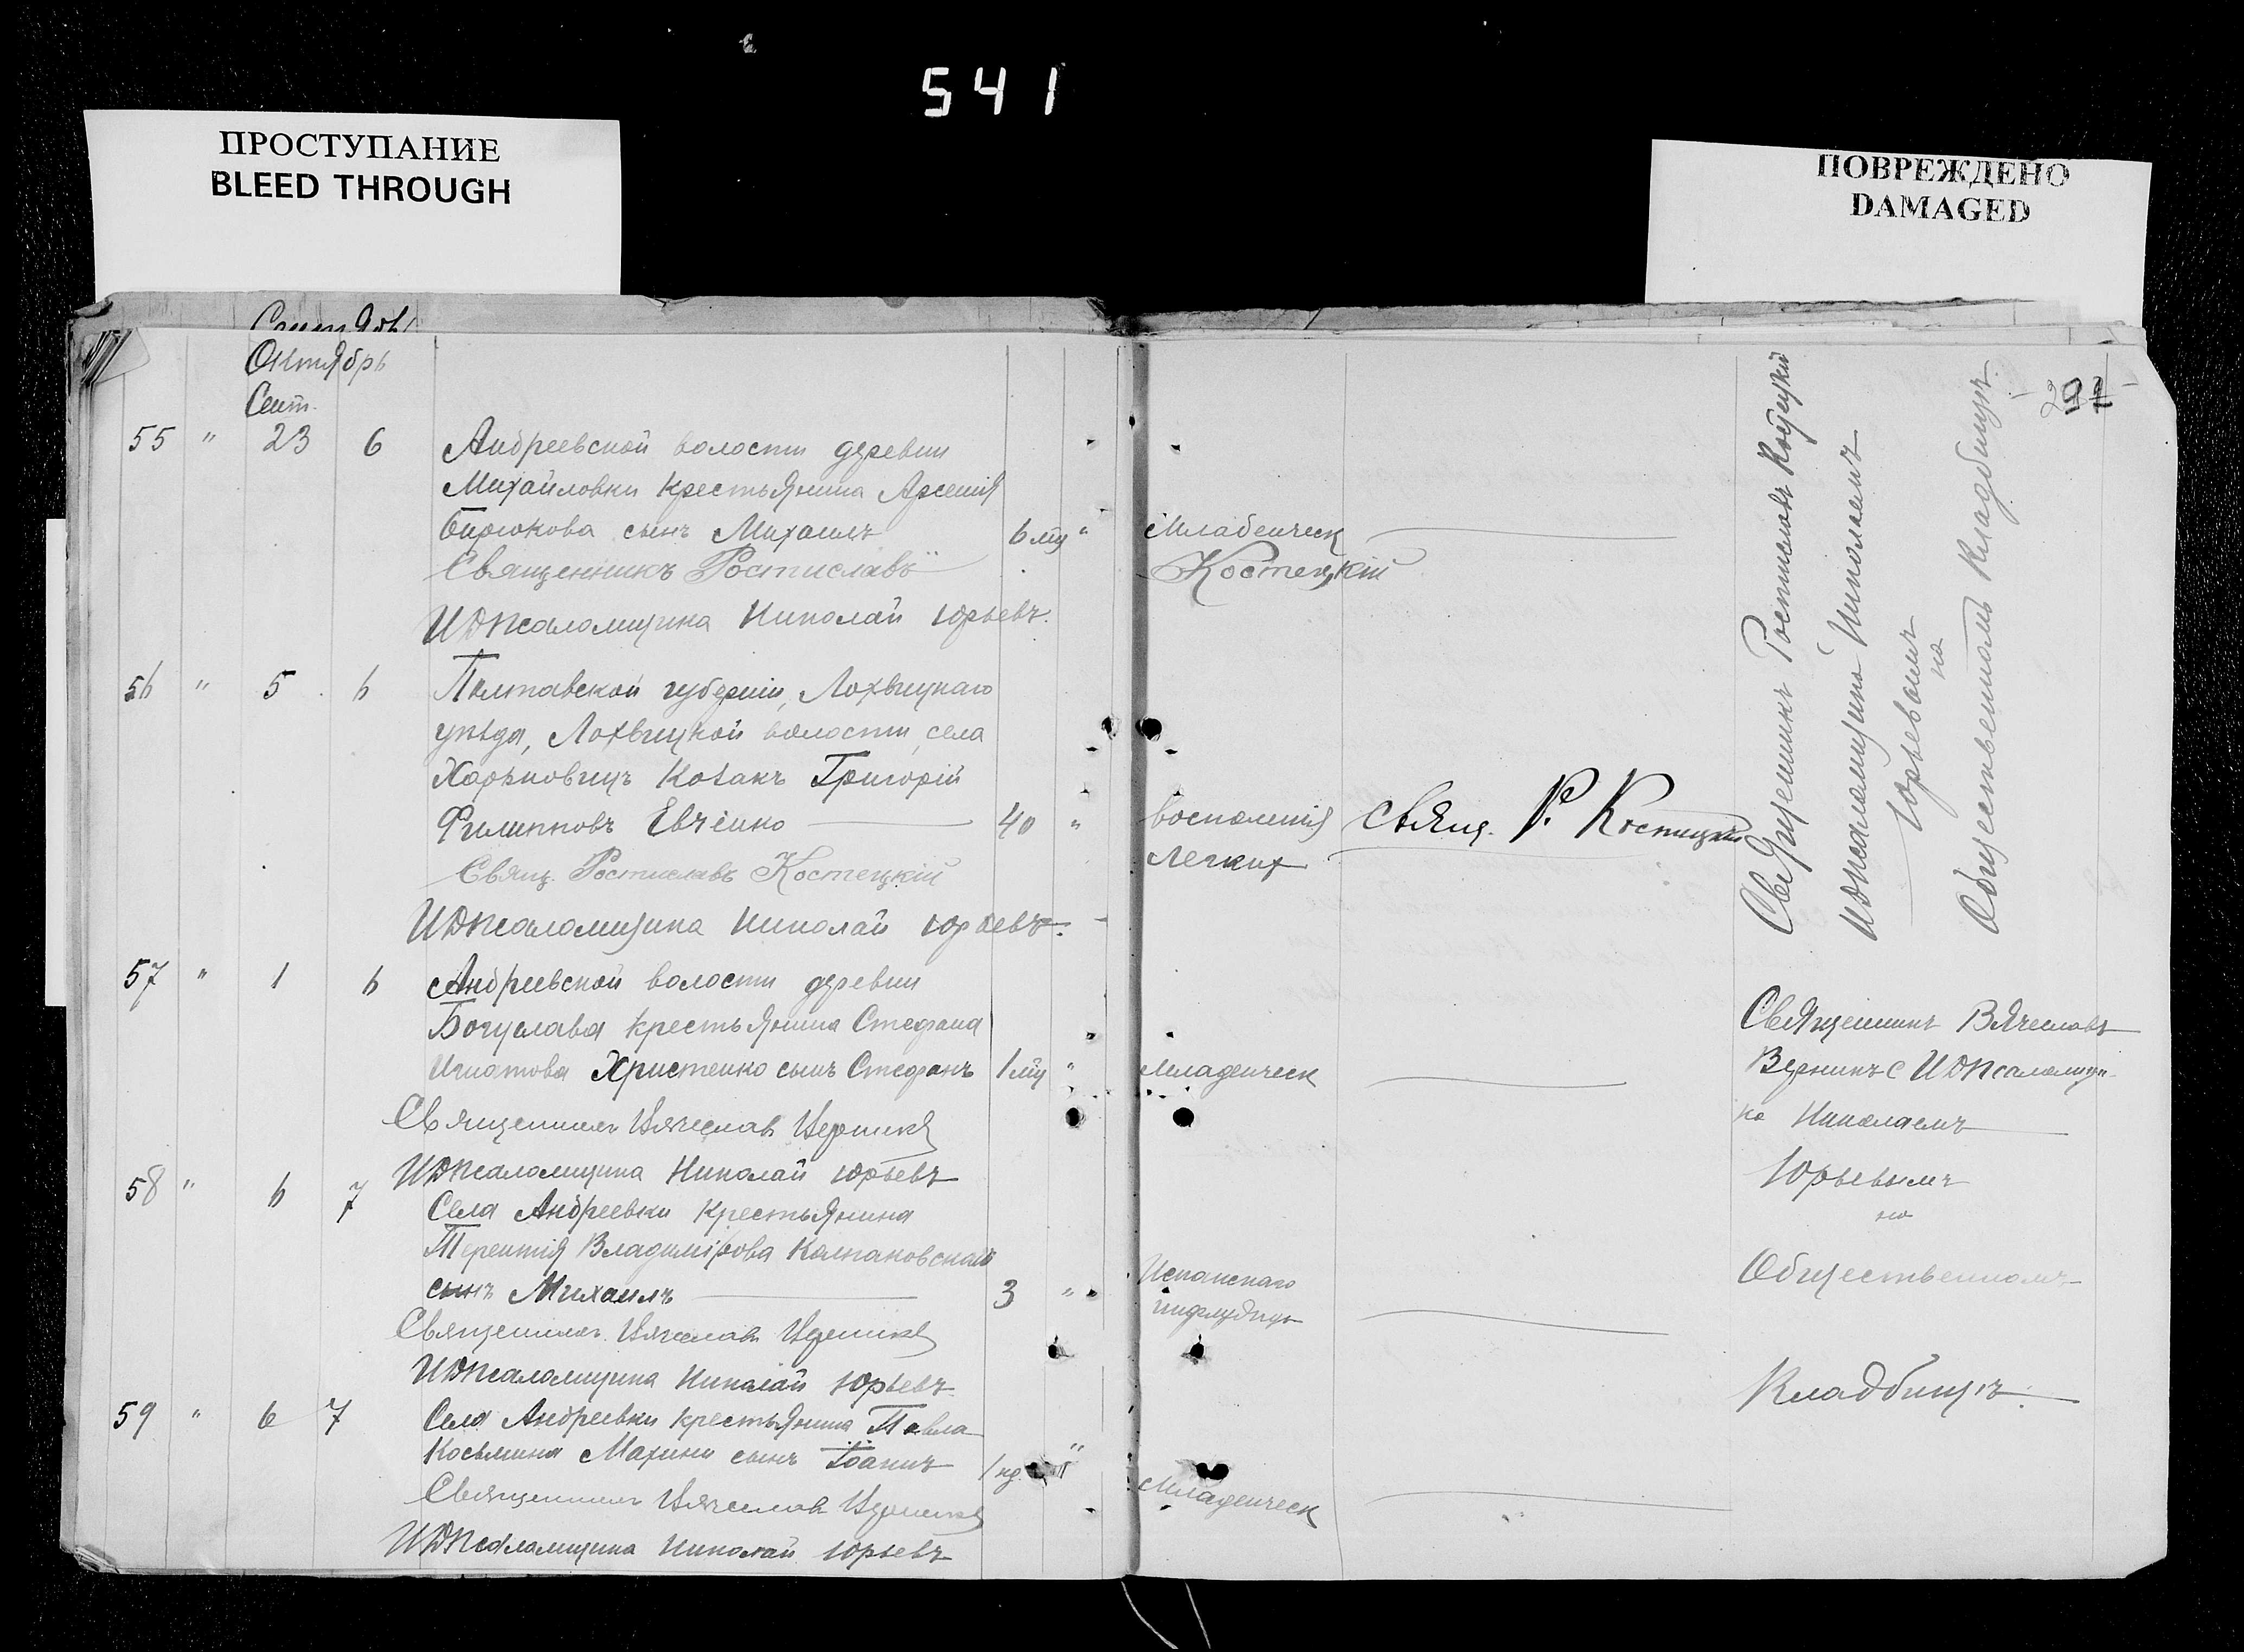 541
ПРОСТУПАНИЕ
BLEED THROUGH
ПОВРЕЖДЕНО
DAMAGED
Октябрь
Сент.
55 " 23 6 Андреевской волости деревни
Михайловки крестьянина Арсенія
Бирюкова сынъ Михаилъ 6 мц " Младенческ
Священникъ Ростиславъ Костецкій
И Д Псаломщика Николай Юрьевъ.
56 " 5 6 Полтавской губерніи, Лохвицкаго
уѣзда, Лохвицкой волости, села
Харьковицъ Козакъ Григорій
Филипповъ Евченко 40 " воспаленія Свящ. Р. Костецкій
легких
Свящ. Ростиславъ Костецкій
И Д Псаломщика Николай Юрьевъ.
57 " 1 6 Андреевской волости деревни
Богуслава крестьянина Стефана
Игнатова Христенко сынъ Стефанъ 1 мц " Младенческ
Священник Вячеслав
И Д Псаломщика Николай Юрьевъ
58 " 6 7 Села Андреевки крестьянина
Терентія Владимірова
сынъ Михаилъ 3 " Испанскаго
Священник Вячеслав
И Д Псаломщика Николай Юрьевъ
59 " 6 7 Села Андреевки крестьянина Павла
Косьмина Махини сынъ Іоаннъ 1 нд. " Младенческ
Священник Вячеслав
И Д Псаломщика Николай Юрьевъ
Священникъ Ростиславъ Костецкій
И Д Псаломщика Николаемъ
Юрьевымъ
на
Общественномъ Кладбищѣ.
Священникъ Вячеславъ
с И Д Псаломщи
ка Николаемъ
Юрьевымъ
на
Общественномъ
Кладбищѣ.